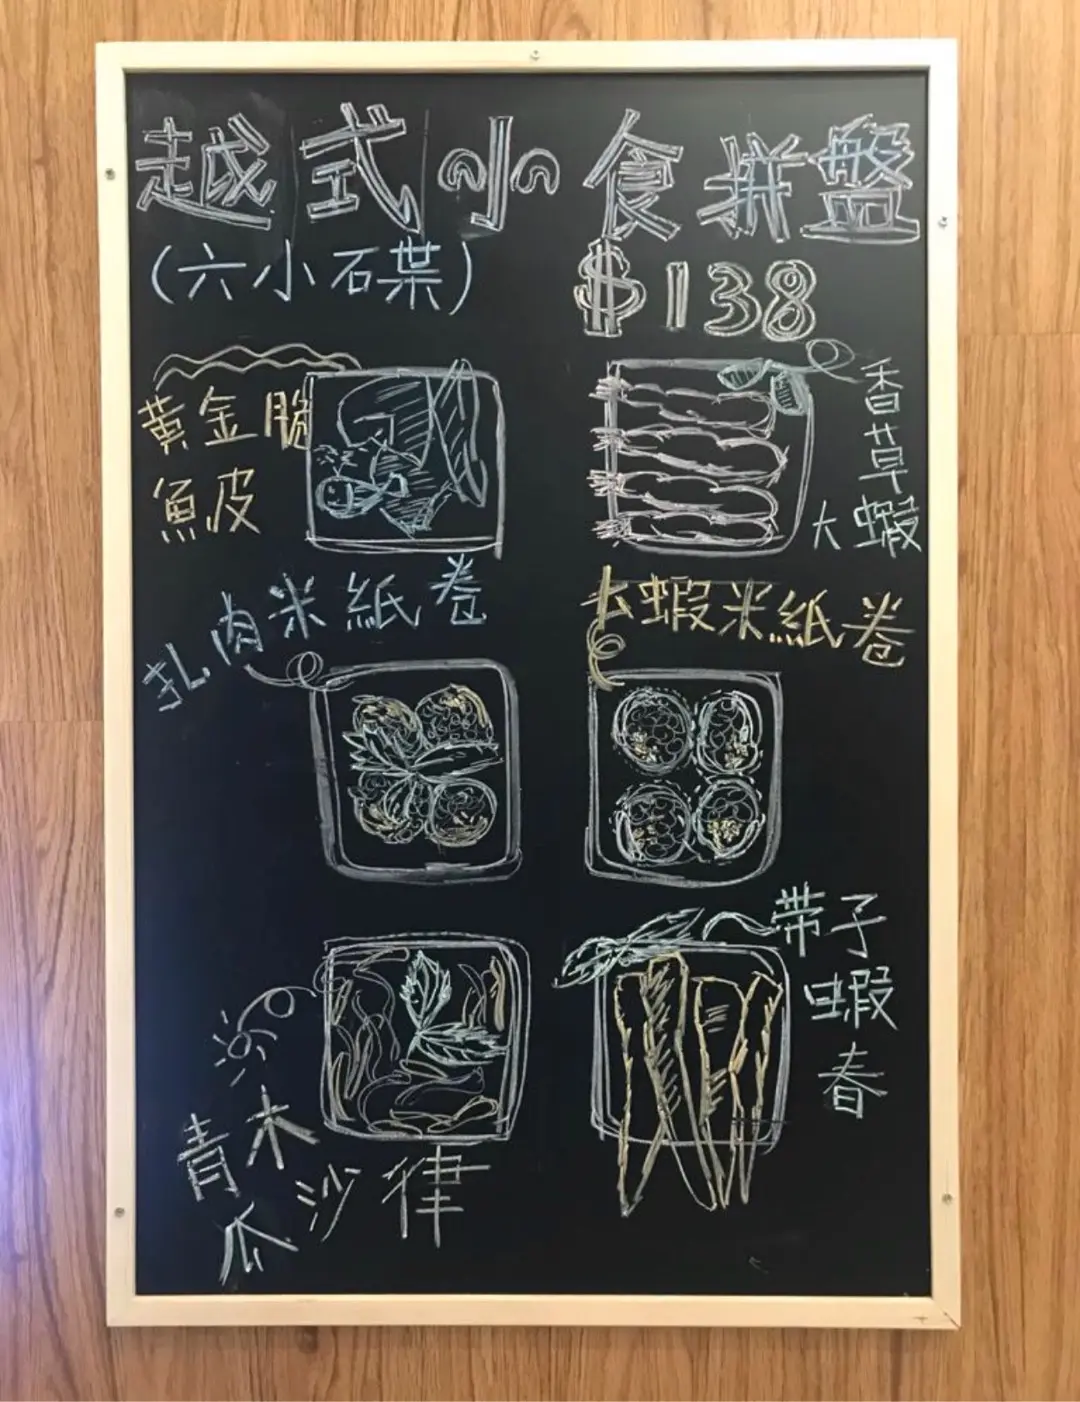 越式小食拼盤
(六小石葉)
$138
黃金脆
魚皮
香草
大蝦
扎肉米紙卷
大蝦米紙卷
帶子
蝦
春
青木
瓜沙律